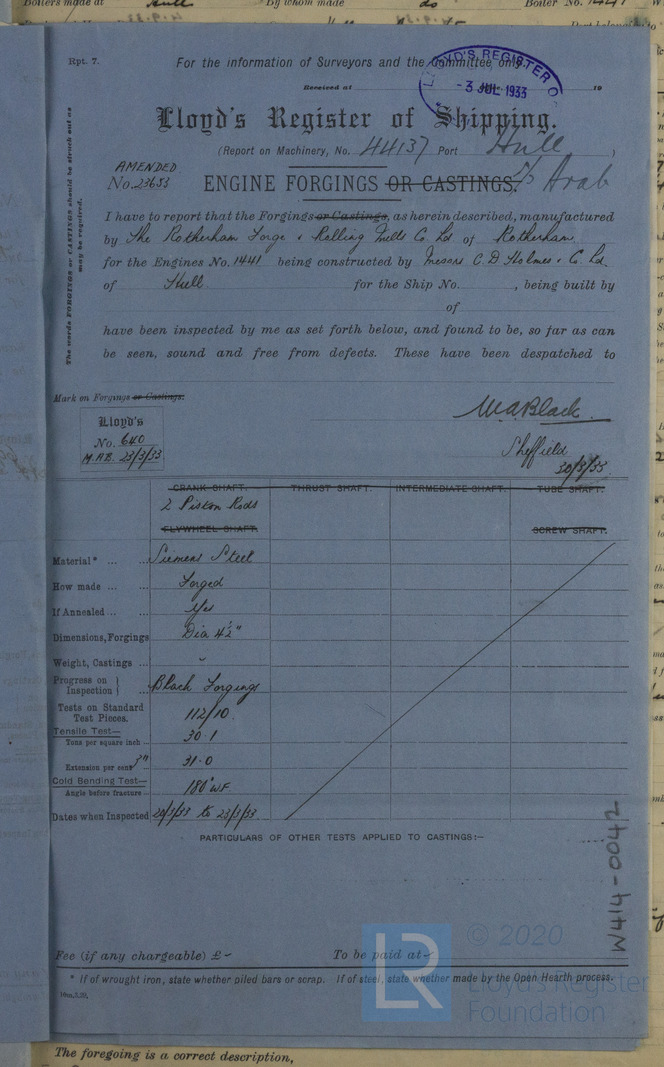 Boilers made at Hull By whom made do Boiler No. 1441
Rpt. 7.
For the information of Surveyors and the Committee only.
Received at 19
LLOYD'S REGISTER O
- 3 JUL 1933
Lloyd's Register of Shipping.
(Report on Machinery, No. 44137 Port Hull )
AMENDED
No. 23653
ENGINE FORGINGS OR CASTINGS. S/S Arab
The words FORGINGS or CASTINGS should be struck out as may be required.
I have to report that the Forgings or Castings, as herein described, manufactured
by The Rotherham Forge & Rolling Mills Co Ld of Rotherham
for the Engines No. 1441 being constructed by Messrs C. D Holmes & Co. Ld.
of Hull. for the Ship No. , being built by
of
have been inspected by me as set forth below, and found to be, so far as can
be seen, sound and free from defects. These have been despatched to
Mark on Forgings or Castings.
Lloyd's
No. 640
M.A.B. 23/3/33
M.A.Black
Sheffield
30/3/33
CRANK SHAFT. THRUST SHAFT. INTERMEDIATE SHAFT. TUBE SHAFT.
2 Piston Rods
FLYWHEEL SHAFT. SCREW SHAFT.
Material* ... ... Siemens Steel
How made ... ... Forged
If Annealed ... ... Yes
Dimensions, Forgings Dia 4½"
Weight, Castings ...
Progress on Inspection } ... Black Forgings
Tests on Standard Test Pieces. 112/10.
Tensile Test—
Tons per square inch .. 30.1
Extension per cent 3" 31.0
Cold Bending Test—
Angle before fracture .. 180° W.F.
Dates when Inspected 20/3/33 to 23/3/33.
PARTICULARS OF OTHER TESTS APPLIED TO CASTINGS:—
W414-0042
Fee (if any chargeable) £ - To be paid at -
* If of wrought iron, state whether piled bars or scrap. If of steel, state whether made by the Open Hearth process.
© 2020
LR
Lloyd's Register
Foundation
The foregoing is a correct description,